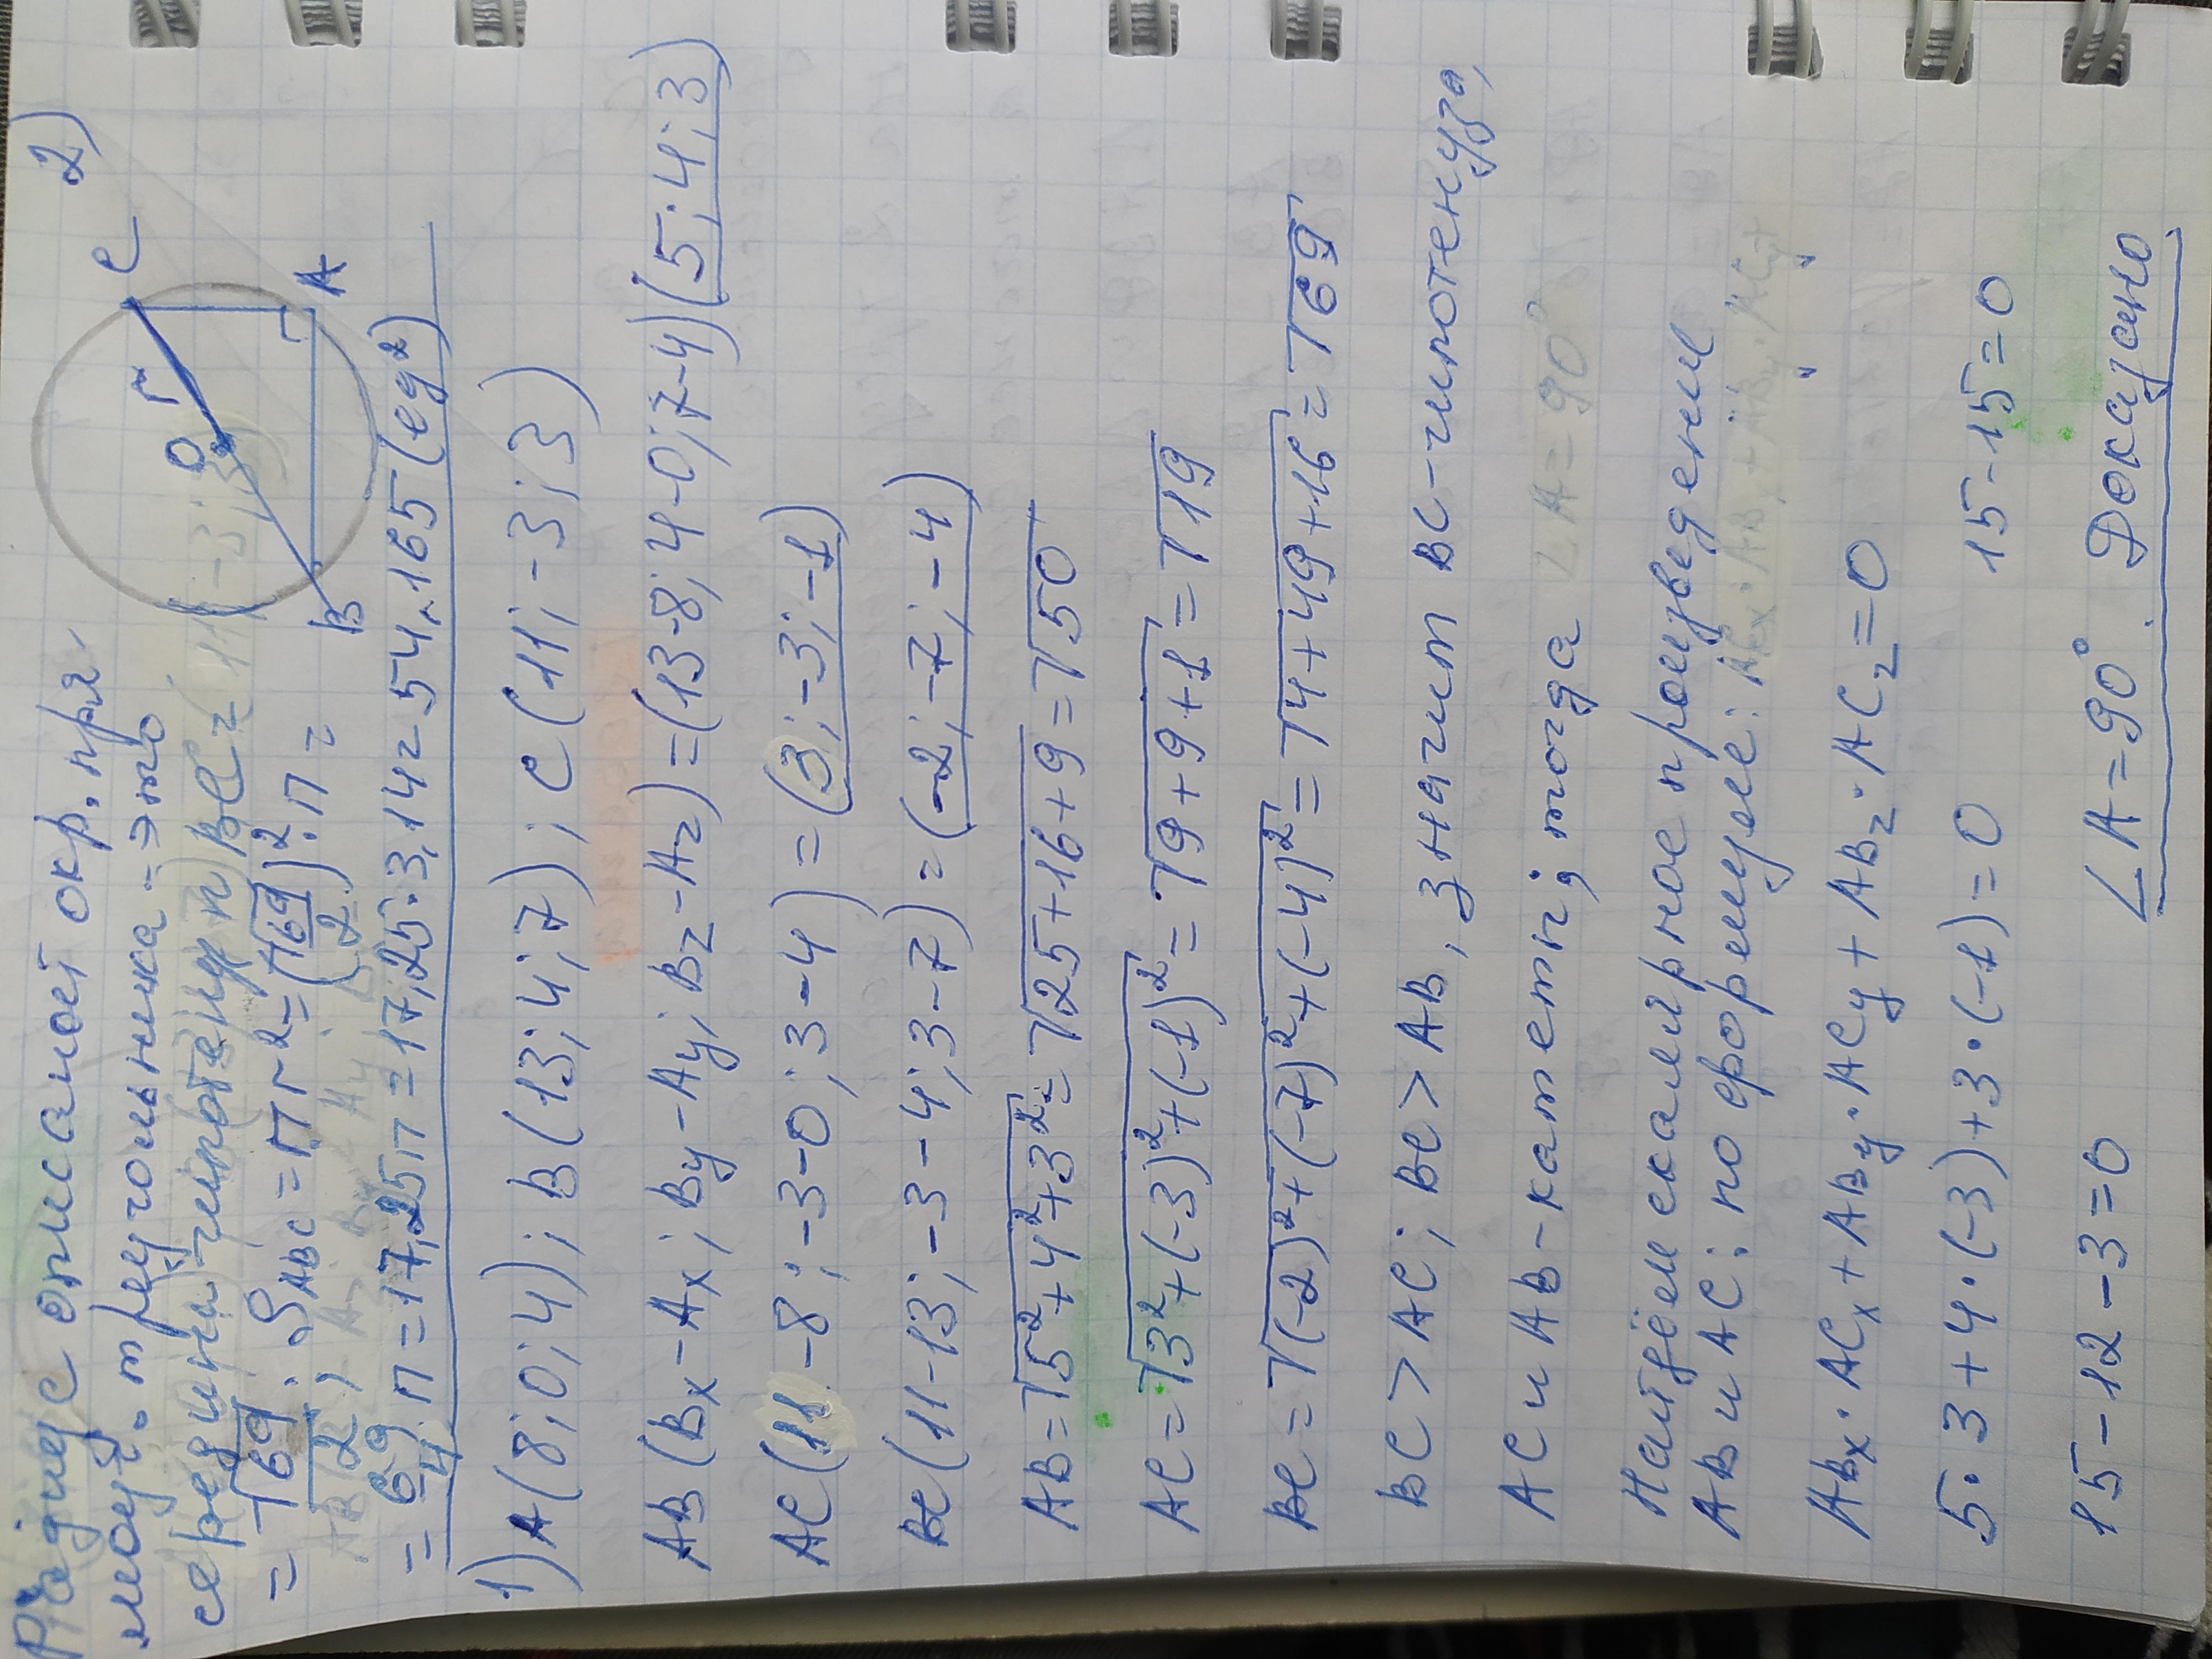 Радиус описаной окр. пря-
моуг. треугольника - это
середины гипотенуз BC =
= √69/2; S ABC = πr² = (√69/2)²·π =
= 69/4 π = 17,25π = 17,25·3,14 = 54,165 (ед²)
2)
C
O
r
B
A
1) A(8;0;4); B(13;4;7); C(11;-3;3)
AB(Bx-Ax; By-Ay; Bz-Az) = (13-8; 4-0; 7-4) (5;4;3)
AC(11-8; -3-0; 3-4) = (3;-3;-1)
BC(11-13; -3-4; 3-7) = (-2;-7;-4)
AB = √5²+4²+3² = √25+16+9 = √50
AC = √3²+(-3)²+(-1)² = √9+9+1 = √19
BC = √(-2)²+(-7)²+(-4)² = √4+49+16 = √69
BC > AC; BC > AB, значит BC - гипотенуза,
AC и AB - катеты; тогда ∠A = 90°
Найдём скалярное произведение
AB и AC: по формуле:
ABx·ACx + ABy·ACy + ABz·ACz = 0
5·3+4·(-3)+3·(-1) = 0 15-15=0
15-12-3=0 ∠A=90° Доказано